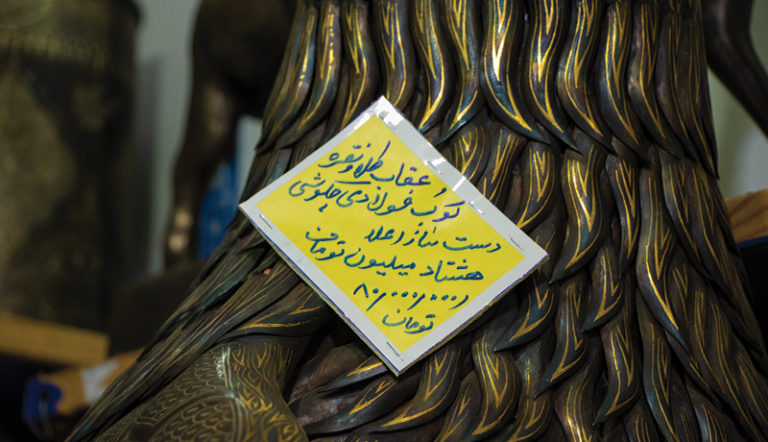 عقاب طلا و نقره
کوب فولادی چلوشی
دست ساز اعلا
هشتاد میلیون تومان
۸۰/۰۰۰/۰۰۰
تومان